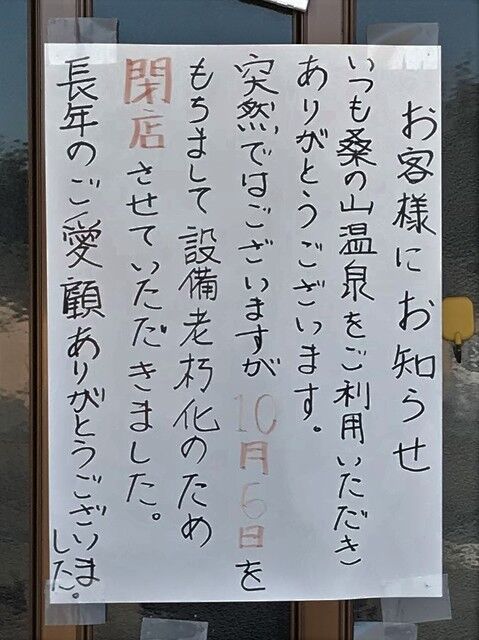 お客様にお知らせ
いつも桑の山温泉をご利用いただき
ありがとうございます。
突然ではございますが10月6日を
もちまして設備老朽化のため
閉店させていただきました。
長年のご愛顧ありがとうございま
した。